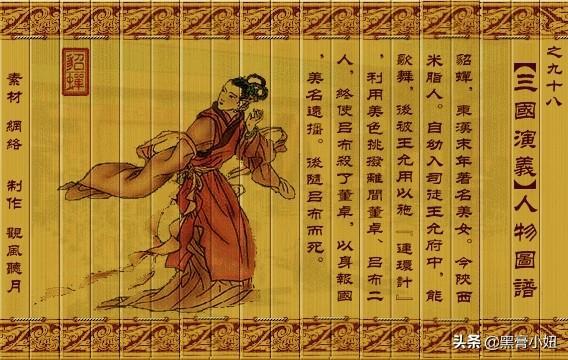 之九十八
【三國演義】人物圖譜
貂蟬，東漢末年著名美女。今陝西
米脂人。自幼入司徒王允府中，能
歌舞，後被王允用以施『連環計』
，利用美色挑撥離間董卓、呂布二
人，終使呂布殺了董卓，以身報國
，美名遠播。後隨呂布而死。
貂蟬
素材 網絡 制作 觀風聽月
头条 @黑骨小妞